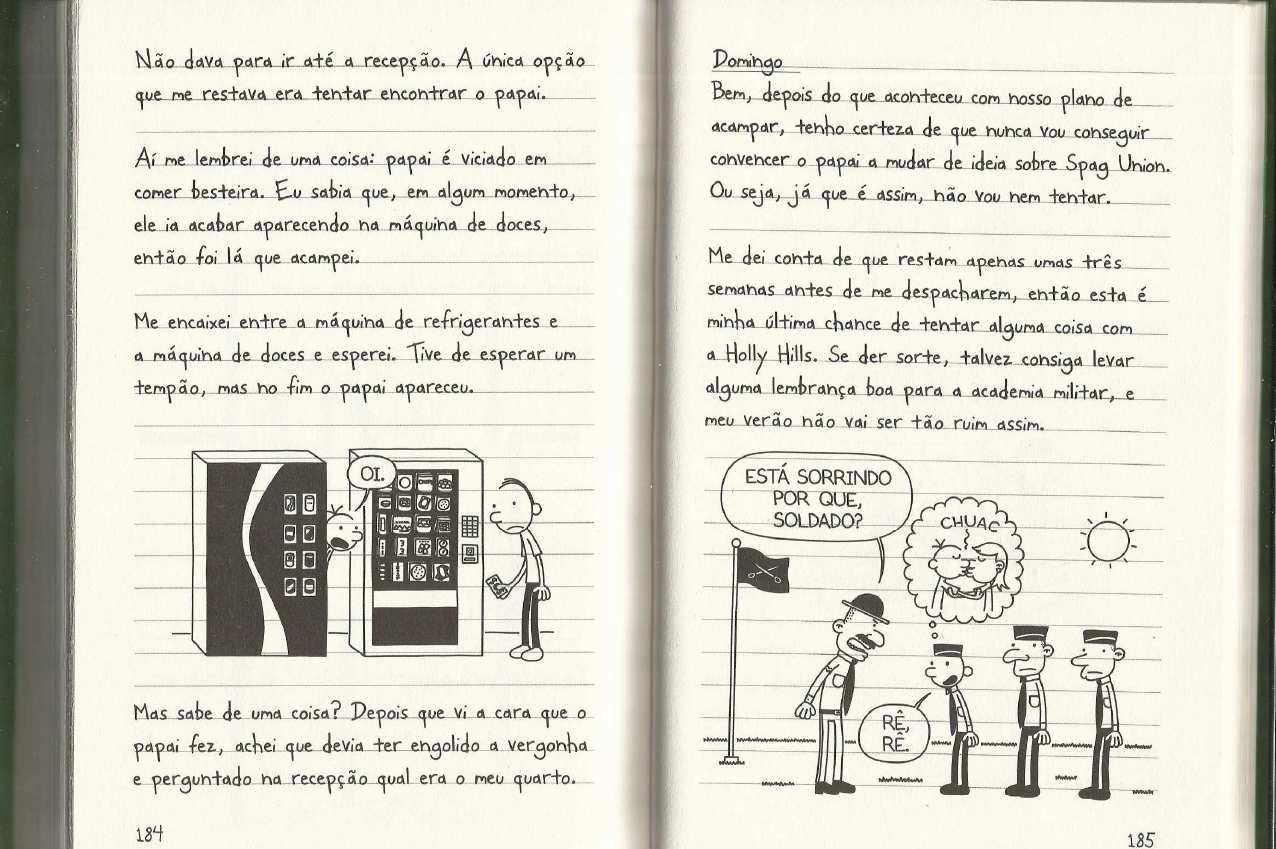 Não dava para ir até a recepção. A única opção
que me restava era tentar encontrar o papai.
Aí me lembrei de uma coisa: papai é viciado em
comer besteira. Eu sabia que, em algum momento,
ele ia acabar aparecendo na máquina de doces,
então foi lá que acampei.
Me encaixei entre a máquina de refrigerantes e
a máquina de doces e esperei. Tive de esperar um
tempão, mas no fim o papai apareceu.
OI.
Mas sabe de uma coisa? Depois que vi a cara que o
papai fez, achei que devia ter engolido a vergonha
e perguntado na recepção qual era o meu quarto.
184
Domingo
Bem, depois do que aconteceu com nosso plano de
acampar, tenho certeza de que nunca vou conseguir
convencer o papai a mudar de ideia sobre Spag Union.
Ou seja, já que é assim, não vou nem tentar.
Me dei conta de que restam apenas umas três
semanas antes de me despacharem, então esta é
minha última chance de tentar alguma coisa com
a Holly Hills. Se der sorte, talvez consiga levar
alguma lembrança boa para a academia militar, e
meu verão não vai ser tão ruim assim.
ESTÁ SORRINDO
POR QUE,
SOLDADO?
CHUAC
RÊ,
RÊ.
185